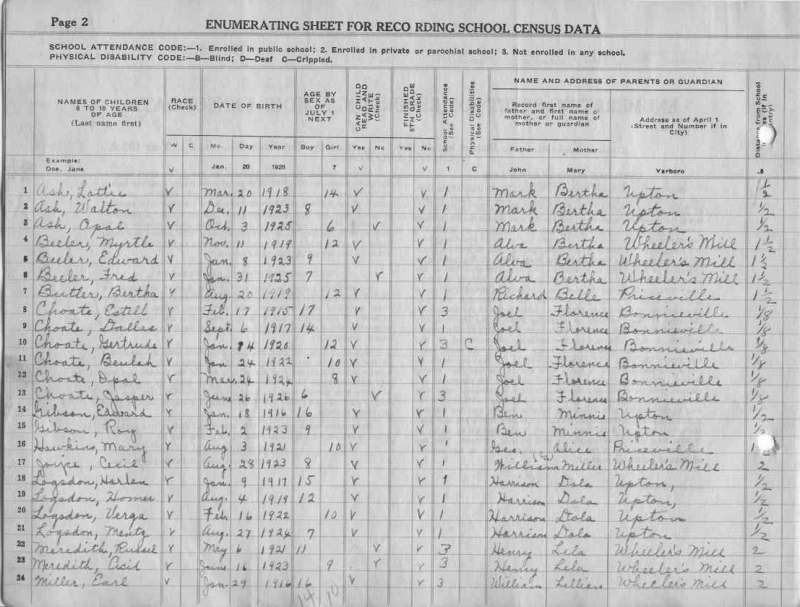 Page 2
ENUMERATING SHEET FOR RECO RDING SCHOOL CENSUS DATA
SCHOOL ATTENDANCE CODE:—1. Enrolled in public school; 2. Enrolled in private or parochial school; 3. Not enrolled in any school.
PHYSICAL DISABILITY CODE:—B—Blind; D—Deaf C—Crippled.
NAMES OF CHILDREN 6 TO 18 YEARS OF AGE (Last name first) RACE (Check) DATE OF BIRTH AGE BY SEX AS OF JULY 1 NEXT CAN CHILD READ AND WRITE (Check) FINISHED 8TH GRADE (Check) School Attendance (See Code) Physical Disabilities (See Code) NAME AND ADDRESS OF PARENTS OR GUARDIAN
Record first name of father and first name of mother, or full name of mother or guardian Address as of April 1 (Street and Number if in City) Distance from School
W C Mo. Day Year Boy Girl Yes No Yes No Father Mother
Example: Doe, Jane V Jan. 20 1925 7 V V 1 C John Mary Yarboro .8
1 Ash, Lottie V Mar. 20 1918 14 V V 1 Mark Bertha Upton 1 1/2
2 Ash, Walton V Dec. 11 1923 8 V V 1 Mark Bertha Upton 1/2
3 Ash, Opal V Oct. 3 1925 6 V V 1 Mark Bertha Upton 1/2
4 Beeler, Myrtle V Nov. 11 1919 12 V V 1 Alva Bertha Wheeler's Mill 1 1/2
5 Beeler, Edward V Jan. 8 1923 9 V V 1 Alva Bertha Wheeler's Mill 1 1/2
6 Beeler, Fred V Jan. 31 1925 7 V V 1 Alva Bertha Wheeler's Mill 1 1/2
7 Butler, Bertha V Aug. 20 1919 12 V V 1 Richard Belle Priceville 1 1/2
8 Choate, Estell V Feb. 17 1915 17 V V 3 Joel Florence Bonnieville 1/8
9 Choate, Dallas V Sept. 6 1917 14 V V 1 Joel Florence Bonnieville 1/8
10 Choate, Gertrude V Jan. 14 1920 12 V V 3 C Joel Florence Bonnieville 1/8
11 Choate, Beulah V Jan 24 1922 10 V V 1 Joel Florence Bonnieville 1/8
12 Choate, Opal V Mar. 24 1924 8 V V 1 Joel Florence Bonnieville 1/8
13 Choate, Jasper V June 26 1926 6 V V 3 Joel Florence Bonnieville 1/8
14 Gibson, Edward V Jan. 18 1916 16 V V 1 Ben Minnie Upton 1/2
15 Gibson, Roy V Feb. 2 1923 9 V V 1 Ben Minnie Upton
16 Hawkins, Mary V Aug 3 1921 10 V V 1 Geo. Alice Priceville
17 Cecil V Aug. 28 1923 8 V V 1 William Wheeler's Mill 2
18 Logsdon, Harlen V Jan. 9 1917 15 V V 1 Harrison Dola Upton, 1/2
19 Logsdon, Homer V Aug. 4 1919 12 V V 1 Harrison Dola Upton, 1/2
20 Logsdon, Verga V Feb. 16 1922 10 V V 1 Harrison Dola Upton 1/2
21 Logsdon, V Aug. 27 1924 7 V V 1 Harrison Dola Upton. 1/2
22 Meredith, Russell V May 6 1921 11 V V 3 Henry Lela Wheeler's Mill 2
23 Meredith, V June 16 1923 9 V V 3 Henry Lela Wheeler's Mill 2
24 Miller, Earl V Jan. 29 1916 16 V V 3 William Lillian Wheeler's Mill 2
14 10